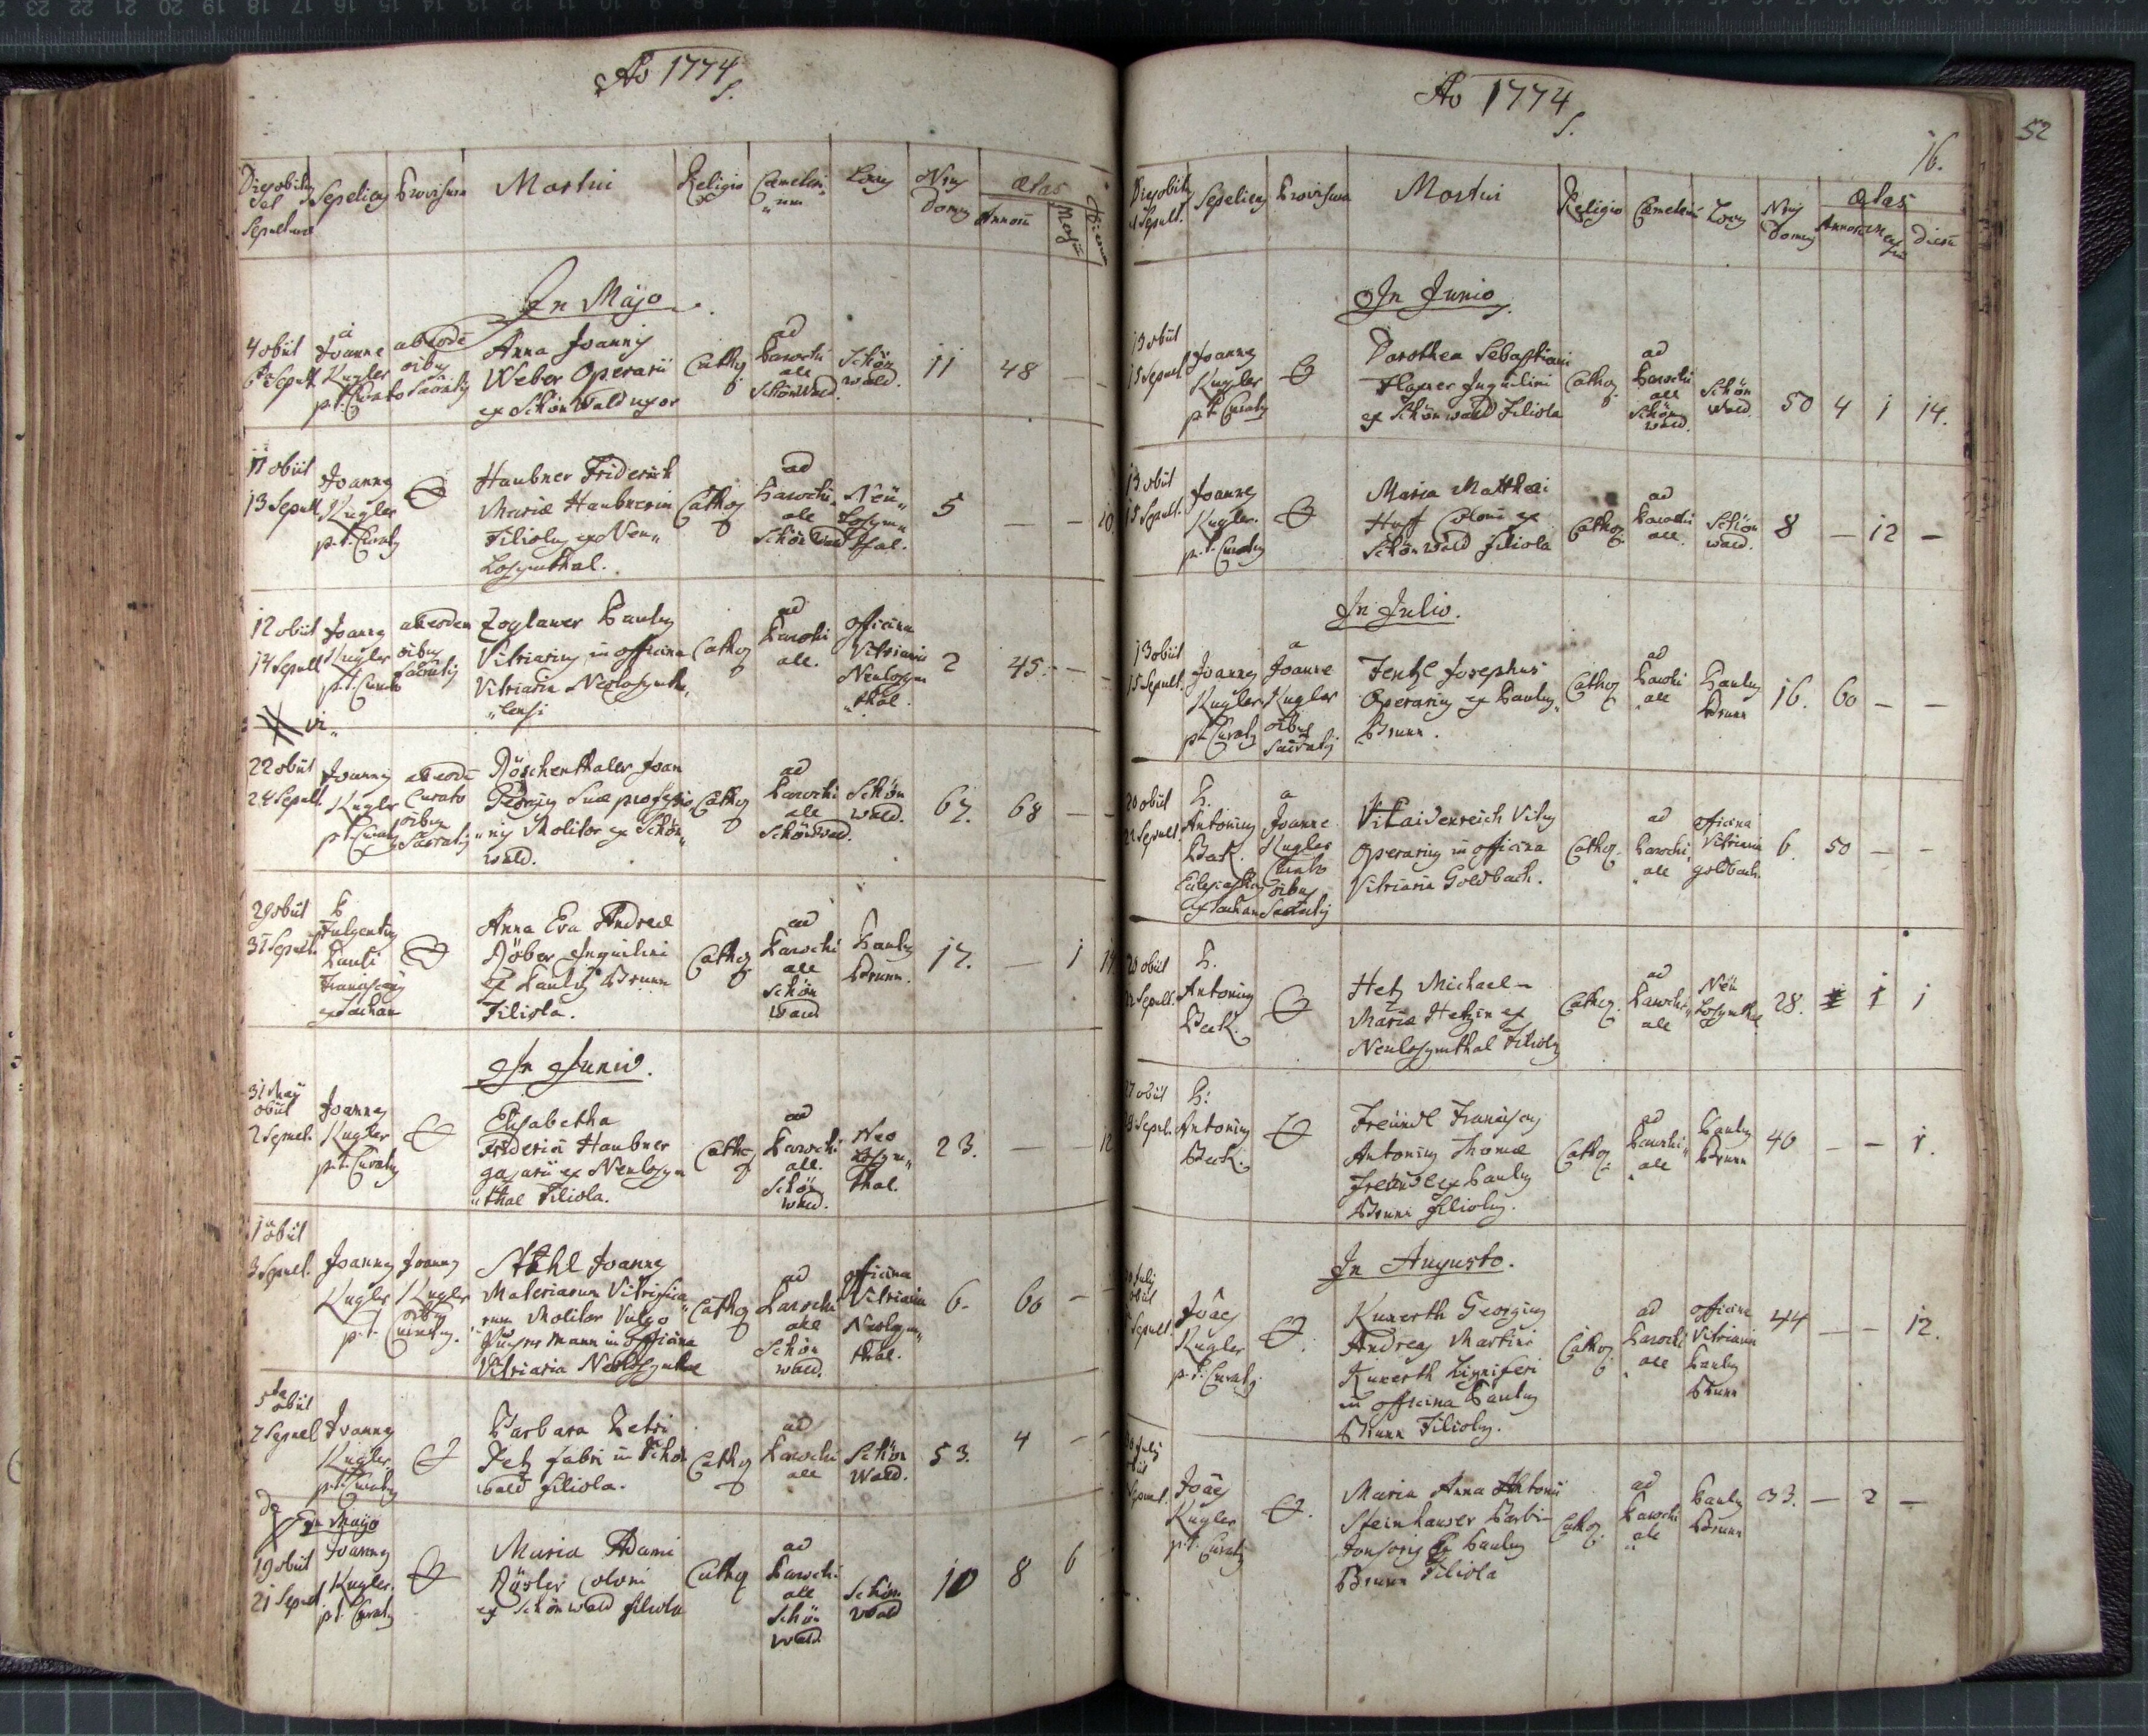 Ao 1774
S.
Dies obitus vel Sepulturæ
Sepeliens
Provisura
Mortui
Religio
Cæmeterium
Locus
Nrus Domus
ætas
Annorū
Mensiū
Dierum
In Majo
4 obiit
6ta Sepult.
a Joanne Kugler p.t. Curato
ab eodē oībus Sacrātis
Anna Joannis
Weber Operarii
ex Schönwald uxor
Cathos
ad Parochiale Schönwald.
Schönwald.
11
48
11 obiit
13 Sepult.
Joannes Kugler p.t. Curatus
Haubner Friderich
Mariæ Haubnerin
Filiolus ex Neu„
Losymthal.
Cathos
ad Parochiale Schönwald
Neü„Losym„thal.
5
10
12 obiit
14 Sepult
Joannes Kugler p.t. Curato
ab eodem oibus Sacrātis
Zoglauer Paulus
Vitriarius in officina
Vitriaria Neolosymth„
„lensi
Cathos
ad Parochiale.
officina Vitriaria Neulosym„thal.
2
45
22 obiit
24 Sepult.
Joannes Kugler p.t. Curatus
ab eodē Curato oibus Sacrātis
Röschenthaler Joan
Georgius Suæ professio
„nis Molitor ex Schön„
wald.
Cathos
ad Parochiale Schönwald.
Schönwald.
67.
68
29 obiit
31 Sepult.
P Fulgentius Pauli Franciscanus ex Tachau
Anna Eva Andreæ
Röber Inquilini
ex Paulus Brunn
Filiola.
Cathos
ad Parochiale Schönwald
Paulus Brunn.
17.
1
14
In Junio.
31 Maÿ obiit
2 Sepul.
Joannes Kugler p.t. Curatus
Elisabetha
Friderici Haubner
gasarii ex Neulosym
„thal Filiola.
Cathos
ad Parochiale. Schönwald.
Neolosym„thal.
23.
12
1a obiit
3 Sepul.
Joannes Kugler p.t.
Joannes Kugler oibus Curatus.
Stehl Joannes
Materiarum Vitrifica„
rum Molitor Vulgo
in officina
Vitriaria Neolosymthal
Cathos
ad Parochiale Schönwald.
officina Vitriaria Neolosym„thal.
6.
60
5ta obiit
7 Sepul
Joannes Kugler p.t. Curatus
Barbara Petri
Petz fabri in Schön
wald filiola.
Cathos
ad Parochiale
Schönwald.
53.
4
In Majo
19 obiit
21 Sepul.
Joannes Kugler. p.t. Curatus
Maria Adami
Rösler Coloni
ex Schönwald filiola
Cathos
ad Parochiale Schönwald
Schönwald
10
8
6
Ao 1774
S.
16.
52
Dies obitus et Sepult.
Sepeliens
Provisura
Mortui
Religio
Cæmeteriū
Locus
Nrus Domus
ætas
Annorū
Mensiū
Dierū
In Junio
13 obiit
15 Sepult
Joannes Kugler p.t. Curatus
Dorothea Sebastiani
Inquilini
ex Schönwald Filiola
Cathos
ad Parochiale Schönwald.
Schönwald.
50
4
1
14.
13 obiit
15 Sepult.
Joannes Kugler. p.t. Curatus
Maria Matthæi
Huff Coloni ex
Schönwald filiola
Cathos
ad Parochiale.
Schönwald.
8
12
In Julio.
13 obiit
15 Sepult.
Joannes Kugler p.t. Curatus
a Joanne Kugler oibus Sacratis
Fentzl Josephus
Operarius ex Paulus„
Brunn.
Cathos
ad Parochiale
Paulus Brunn
16.
60
20 obiit
22 Sepult.
P. Antonius Beck. ex Tachau
a Joanne Kugler Curato oibus Sacratis
Vitus
Operarius in officina
Vitriaria Goldbach.
Cathos
ad Parochiale
officina Vitriaria goldbach.
6.
50
20 obiit
22 Sepult.
P. Antonius Beck.
Hetz Michael
Mariæ Hetzin ex
Neulosymthal Filiolus
Cathos
ad Parochiale
Neü Losymthal
28.
1
1
27 obiit
Sepul.
P. Antonius Beck.
Freündl Franciscus
Antonius Thomæ
Freündl ex Paulus
Brunn filiolus.
Cathos
ad Parochiale
Paulus Brunn
40
1.
In Augusto.
Julÿ obiit
Sepult.
Joães Kugler p.t. Curatus
Kunerth Georgius
Andreas Martini
Kunerth Ligniferi
in officina Paulus
Brunn Filiolus.
Cathos
ad Parochiale
officina Vitriaria Paulus Brunn
44
12.
Julÿ obiit
Sepult.
Joães Kugler p.t. Curatus
Maria Anna Antonii
Steinhauser Barbi
tonsoris ex Paulus
Brunn Filiola
Cathos.
ad Parochiale
Paulus Brunn
33.
2